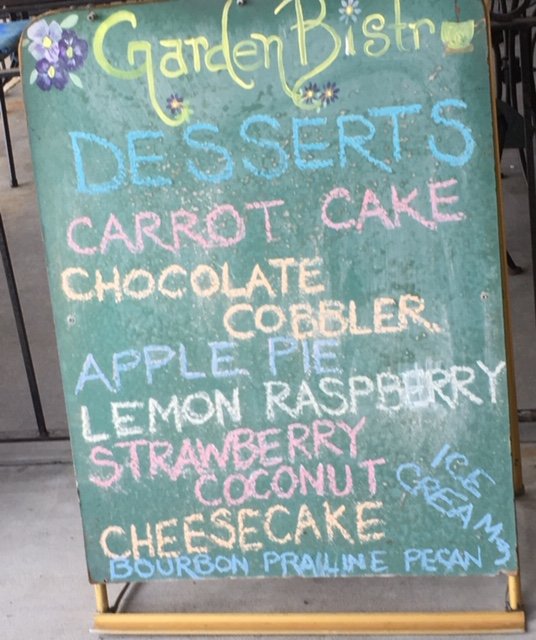 Garden Bistro
DESSERTS
CARROT CAKE
CHOCOLATE
COBBLER
APPLE PIE
LEMON RASPBERRY
STRAWBERRY
COCONUT
ICE
CREAM
CHEESECAKE
BOURBON PRALINE PECAN